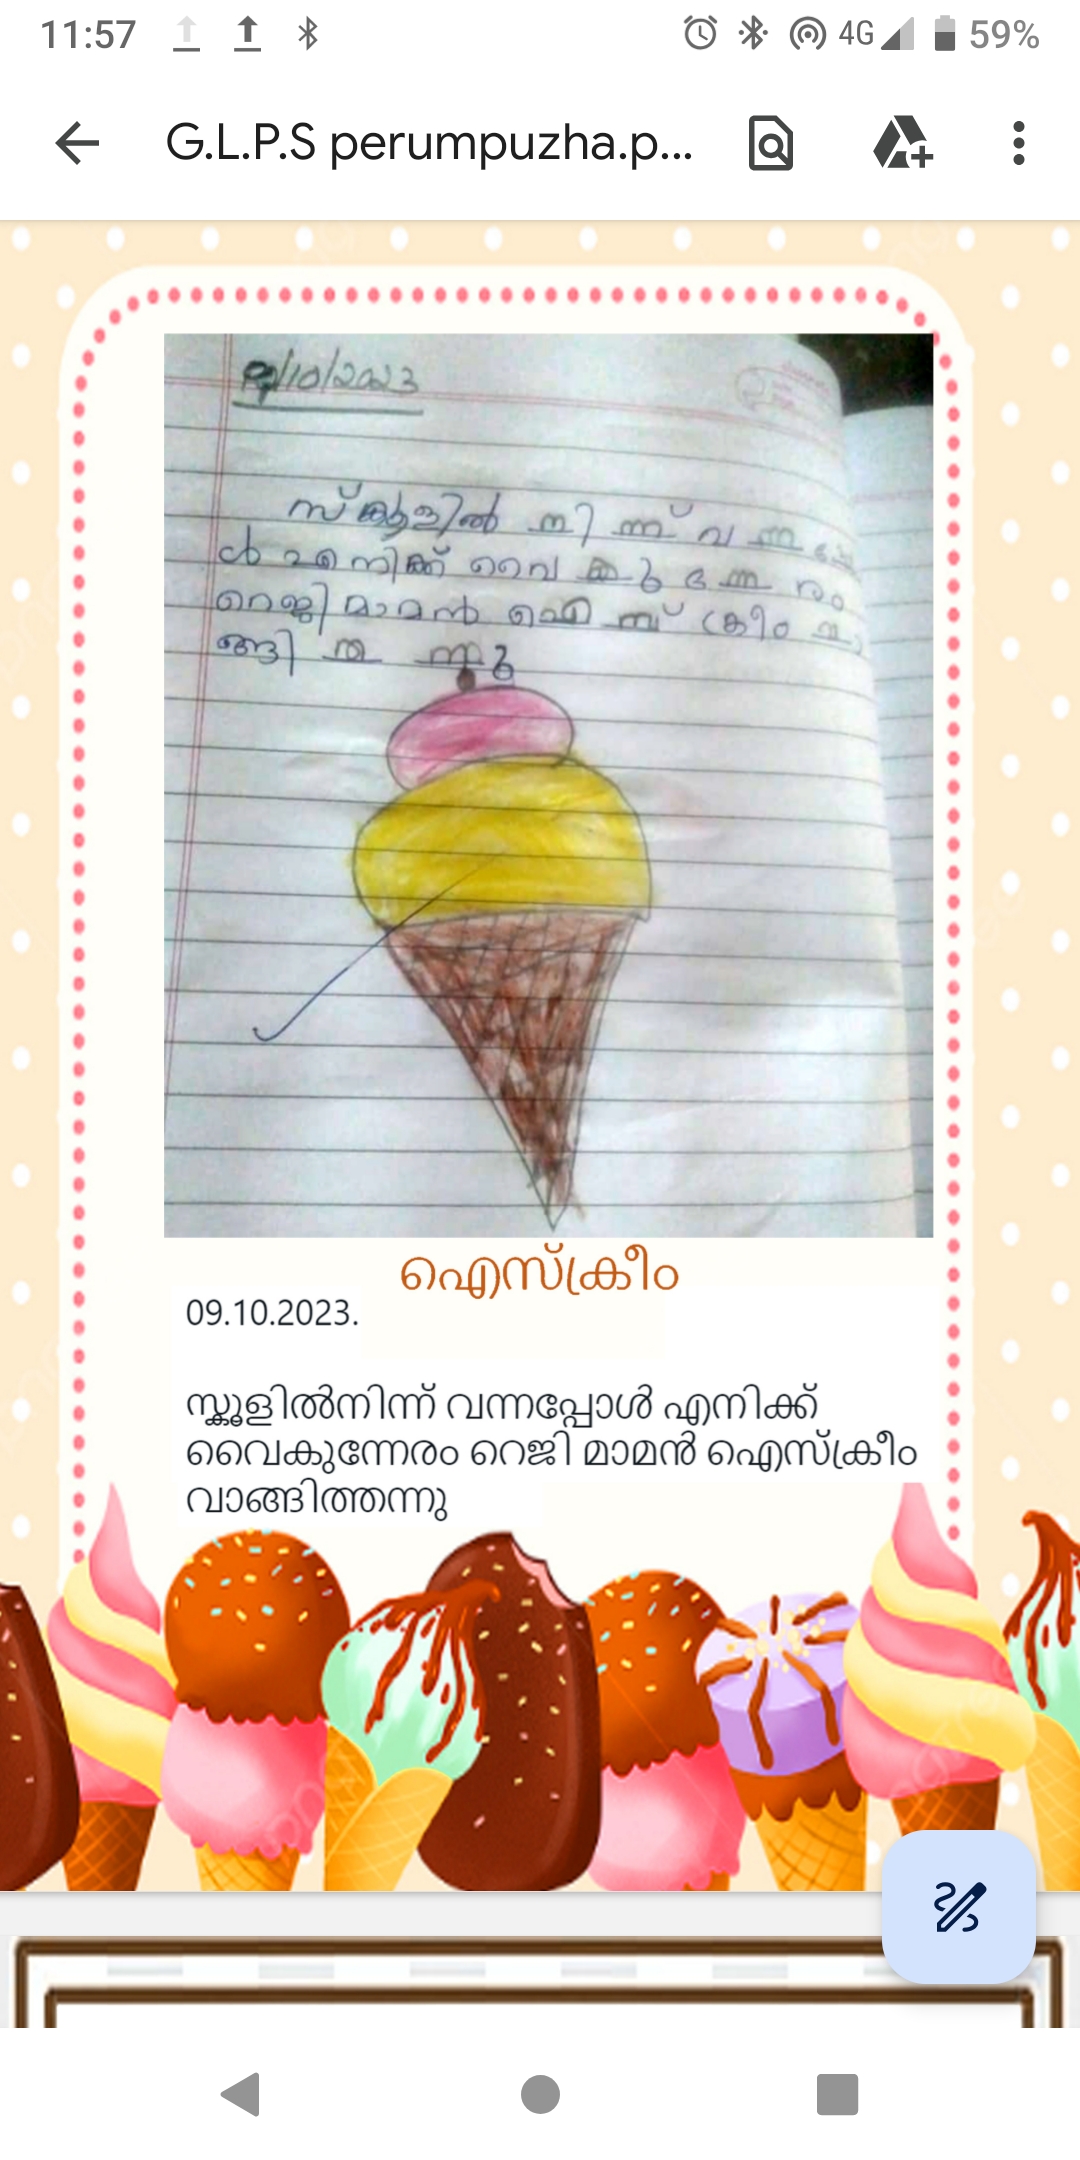 11:57
4G 59%
G.L.P.S perumpuzha.p...
9/10/2023
സ്കൂളിൽ നിന്ന് വന്നപ്പോ
ൾ എനിക്ക് വൈകുന്നേരം
റെജി മാമൻ ഐസ് ക്രീം വാ
ങ്ങി ത ന്നു
ഐസ്ക്രീം
09.10.2023.
സ്കൂളിൽനിന്ന് വന്നപ്പോൾ എനിക്ക്
വൈകുന്നേരം റെജി മാമൻ ഐസ്ക്രീം
വാങ്ങിത്തന്നു